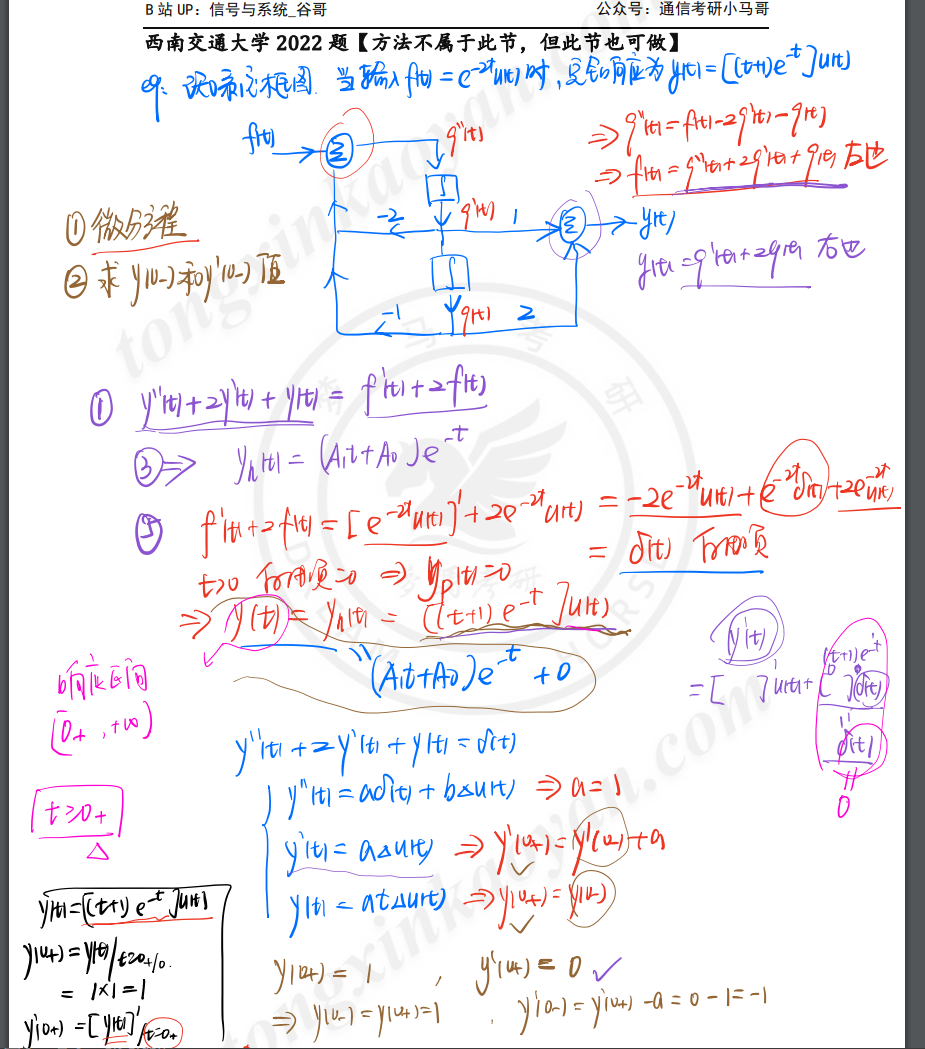 B 站 UP：信号与系统_谷哥
公众号：通信考研小马哥
西南交通大学 2022 题【方法不属于此节，但此节也可做】
eg: 已知系统框图. 当输入f(t)=e^{-2t}u(t)时,完全响应为y(t)=[(t+1)e^{-t}]u(t)
f(t) Σ q''(t)
⇒ q''(t)=f(t)-2q'(t)-q(t)
⇒ f(t)=q''(t)+2q'(t)+q(t) 左边
∫
-2 q'(t) 1 Σ y(t)
① 微分方程
② 求 y(0-)和y'(0-)
y(t)=q'(t)+2q(t) 右边
∫
-1 q(t) 2
① y''(t)+2y'(t)+y(t)= f'(t)+2f(t)
③⇒ yh(t)=(A1t+A0)e^{-t}
f'(t)+2f(t)=[e^{-2t}u(t)]'+2e^{-2t}u(t) = -2e^{-2t}u(t)+e^{-2t}δ(t)+2e^{-2t}u(t)
= δ(t) 右端项
t>0 右端项=0 ⇒ yp(t)=0
⇒ y(t)=yh(t)=[(t+1)e^{-t}]u(t)
(A1t+A0)e^{-t}+0
y'(t)
=[ ]'u(t)+[ ]δ(t)
(t+1)e^{-t}
δ(t)
0
响应区间
[0+,+∞)
y''(t)+2y'(t)+y(t)=δ(t)
y''(t)=aδ(t)+bΔu(t) ⇒ a=1
t≥0+
Δ
y'(t)=aΔu(t) ⇒ y'(0+)=y'(0-)+a
y(t)=atΔu(t) ⇒ y(0+)=y(0-)
y(t)=[(t+1)e^{-t}]u(t)
y(0+)=y(t)|t=0+/0.
=1×1=1
y'(0+)=[y(t)]'|t=0+
y(0+)=1 , y'(0+)=0 ✓
⇒ y(0-)=y(0+)=1 , y'(0-)=y'(0+)-a=0-1=-1
tongxinkaoyan.com